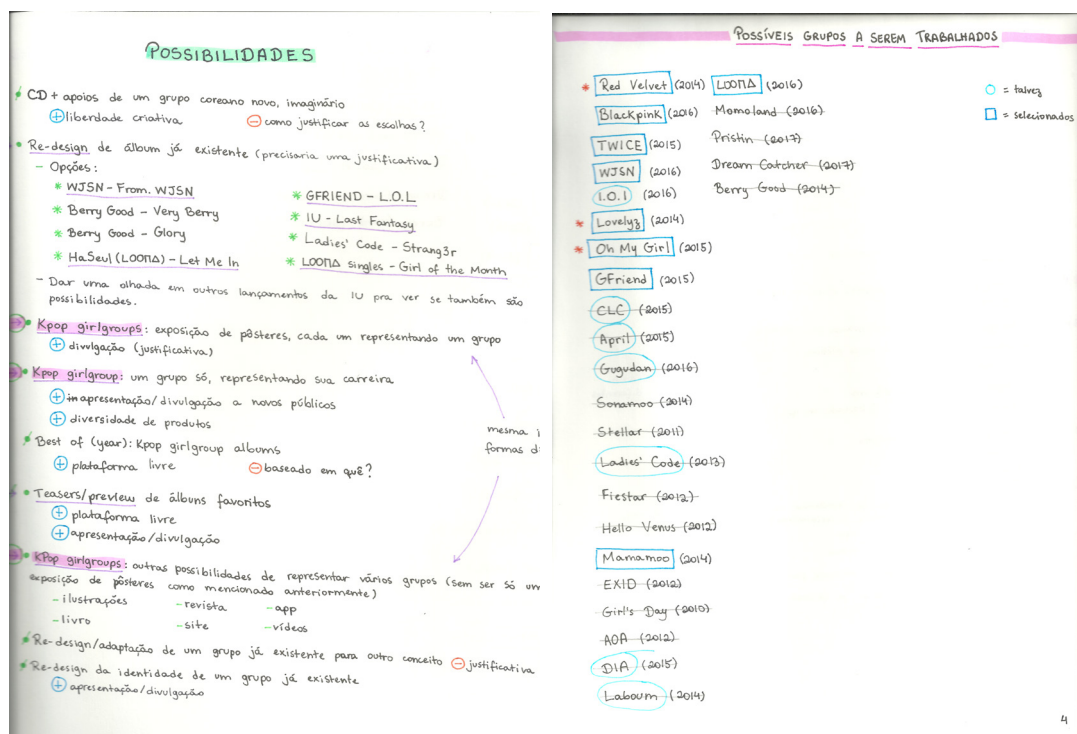 POSSIBILIDADES
CD + apoios de um grupo coreano novo, imaginário
+ liberdade criativa
- como justificar as escolhas?
Re-design de álbum já existente (precisaria uma justificativa)
- Opções:
* WJSN - From. WJSN
* Berry Good - Very Berry
* Berry Good - Glory
* HaSeul (LOOΠΔ) - Let Me In
* GFRIEND - L.O.L
* IU - Last Fantasy
* Ladies' Code - Strang3r
* LOOΠΔ singles - Girl of the Month
- Dar uma olhada em outros lançamentos da IU pra ver se também são
possibilidades.
Kpop girlgroups: exposição de pôsteres, cada um representando um grupo
+ divulgação (justificativa)
Kpop girlgroup: um grupo só, representando sua carreira
+ apresentação/divulgação a novos públicos
+ diversidade de produtos
mesma i
formas d
Best of (year): Kpop girlgroup albums
+ plataforma livre
- baseado em quê?
Teasers/preview de álbuns favoritos
+ plataforma livre
+ apresentação/divulgação
KPop girlgroups: outras possibilidades de representar vários grupos (sem ser só um
exposição de pôsteres como mencionado anteriormente)
- ilustrações - revista - app
- livro - site - vídeos
Re-design/adaptação de um grupo já existente para outro conceito - justificativa
Re-design da identidade de um grupo já existente
+ apresentação/divulgação
POSSÍVEIS GRUPOS A SEREM TRABALHADOS
* Red Velvet (2014)
Blackpink (2016)
TWICE (2015)
WJSN (2016)
I.O.I (2016)
* Lovelyz (2014)
* Oh My Girl (2015)
GFriend (2015)
CLC (2015)
April (2015)
Gugudan (2016)
Sonamoo (2014)
Stellar (2011)
Ladies' Code (2013)
Fiestar (2012)
Hello Venus (2012)
Mamamoo (2014)
EXID (2012)
Girl's Day (2010)
AOA (2012)
DIA (2015)
Laboum (2014)
LOOΠΔ (2016)
Momoland (2016)
Pristin (2017)
Dream Catcher (2017)
Berry Good (2014)
= talvez
= selecionados
4